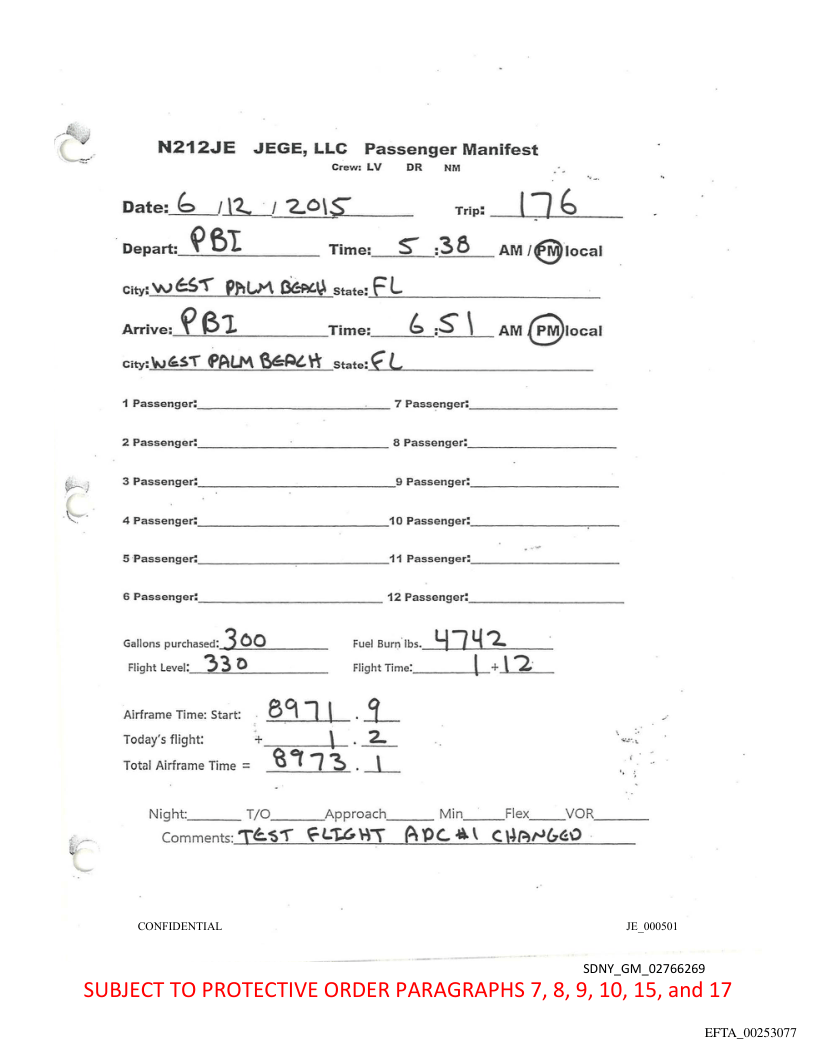 N212JE JEGE, LLC Passenger Manifest
Crew: LV DR NM
Date: 6 / 12 / 2015 Trip: 176
Depart: PBI Time: 5 :38 AM / PM local
City: WEST PALM BEACH State: FL
Arrive: PBI Time: 6 :51 AM / PM local
City: WEST PALM BEACH State: FL
1 Passenger: 7 Passenger:
2 Passenger: 8 Passenger:
3 Passenger: 9 Passenger:
4 Passenger: 10 Passenger:
5 Passenger: 11 Passenger:
6 Passenger: 12 Passenger:
Gallons purchased: 300 Fuel Burn lbs. 4742
Flight Level: 330 Flight Time: 1 + 12
Airframe Time: Start: 8971 . 9
Today's flight: + 1 . 2
Total Airframe Time = 8973 . 1
Night: T/O Approach Min Flex VOR
Comments: TEST FLIGHT ADC #1 CHANGED
CONFIDENTIAL JE_000501
SDNY_GM_02766269
SUBJECT TO PROTECTIVE ORDER PARAGRAPHS 7, 8, 9, 10, 15, and 17
EFTA_00253077